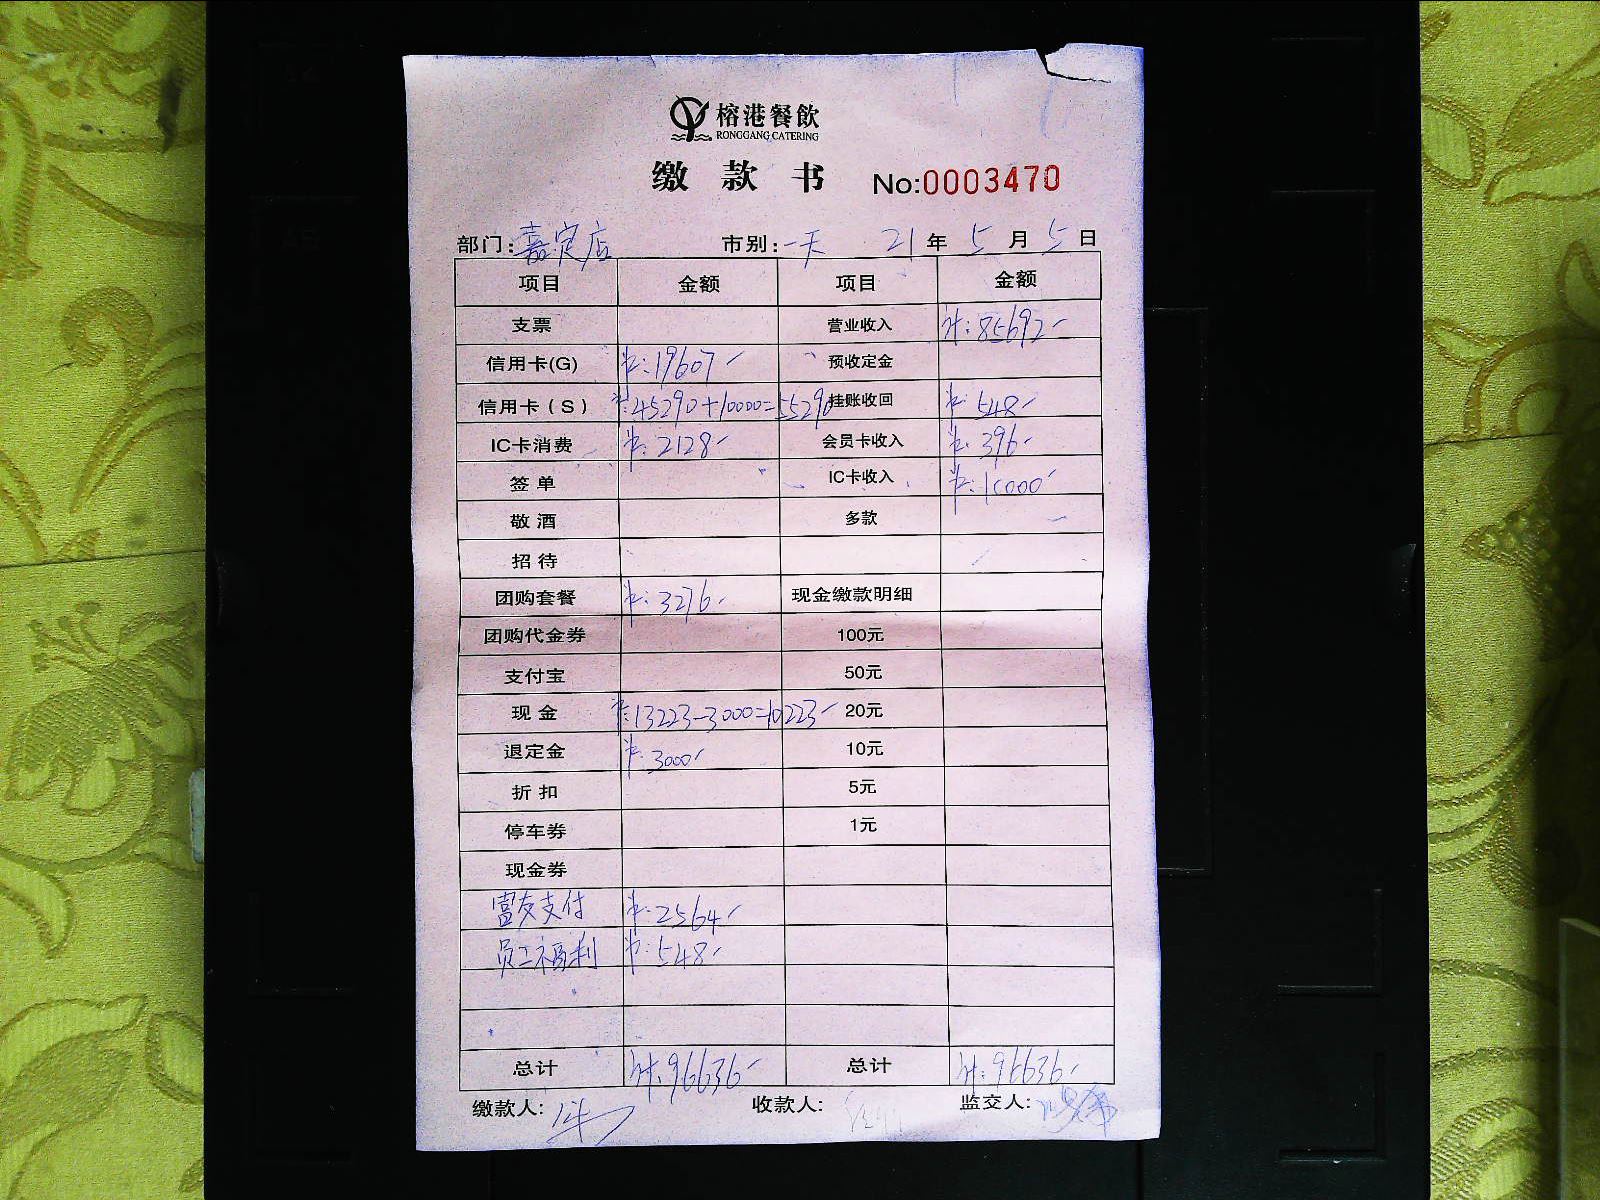 榕港餐飲
RONGGANG CATERING
缴款书 No:0003470
部门:嘉定店 市别:一天 21年5月5日
项目 金额 项目 金额
支票 营业收入 计:85692
信用卡(G) 卡:19607 预收定金
信用卡(S) 卡:45290+10000=55290 挂账收回 卡:548
IC卡消费 卡:2128 会员卡收入 卡:396
签单 IC卡收入 卡:10000
敬酒 多款
招待
团购套餐 卡:3276 现金缴款明细
团购代金券 100元
支付宝 50元
现金 卡:13223-3000=10223 20元
退定金 卡:3000 10元
折扣 5元
停车券 1元
现金券
富友支付 卡:2564
员工福利 卡:548
总计 计:96636 总计 计:96636
缴款人: 收款人: 监交人: